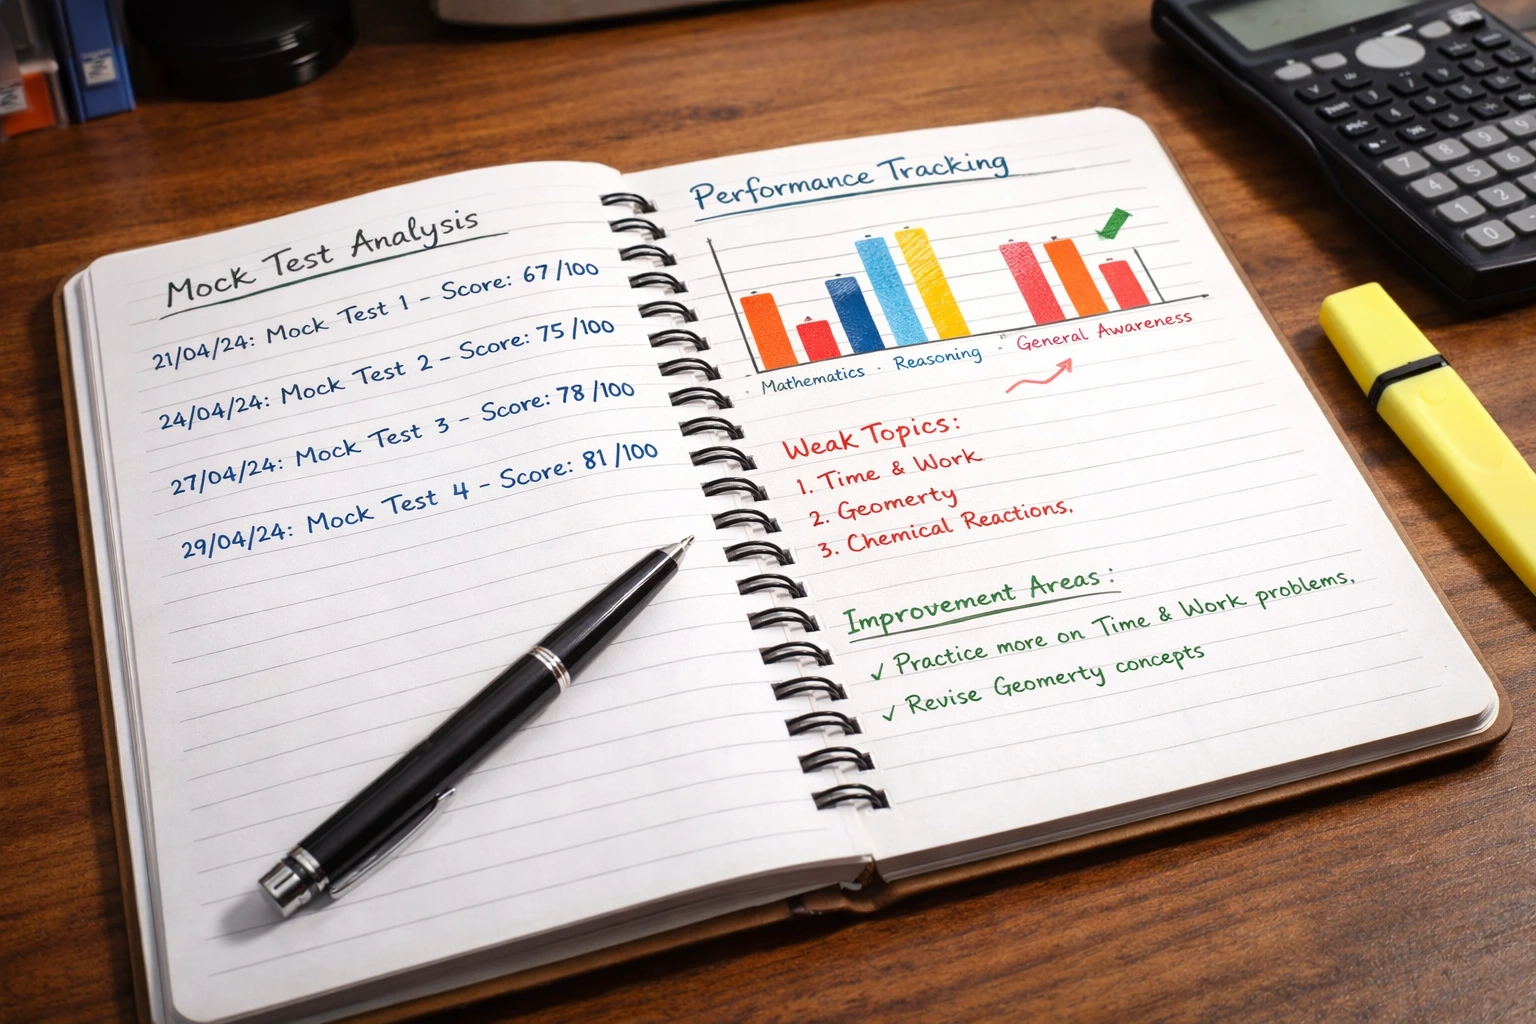 Mock Test Analysis
21/04/24: Mock Test 1 - Score: 67/100
24/04/24: Mock Test 2 - Score: 75/100
27/04/24: Mock Test 3 - Score: 78/100
29/04/24: Mock Test 4 - Score: 81/100
Performance Tracking
Mathematics · Reasoning · General Awareness
Weak Topics:
1. Time & Work
2. Geomerty
3. Chemical Reactions.
Improvement Areas:
✓ Practice more on Time & Work problems.
✓ Revise Geomerty concepts
7 8 9
4 5 6
1 2
0